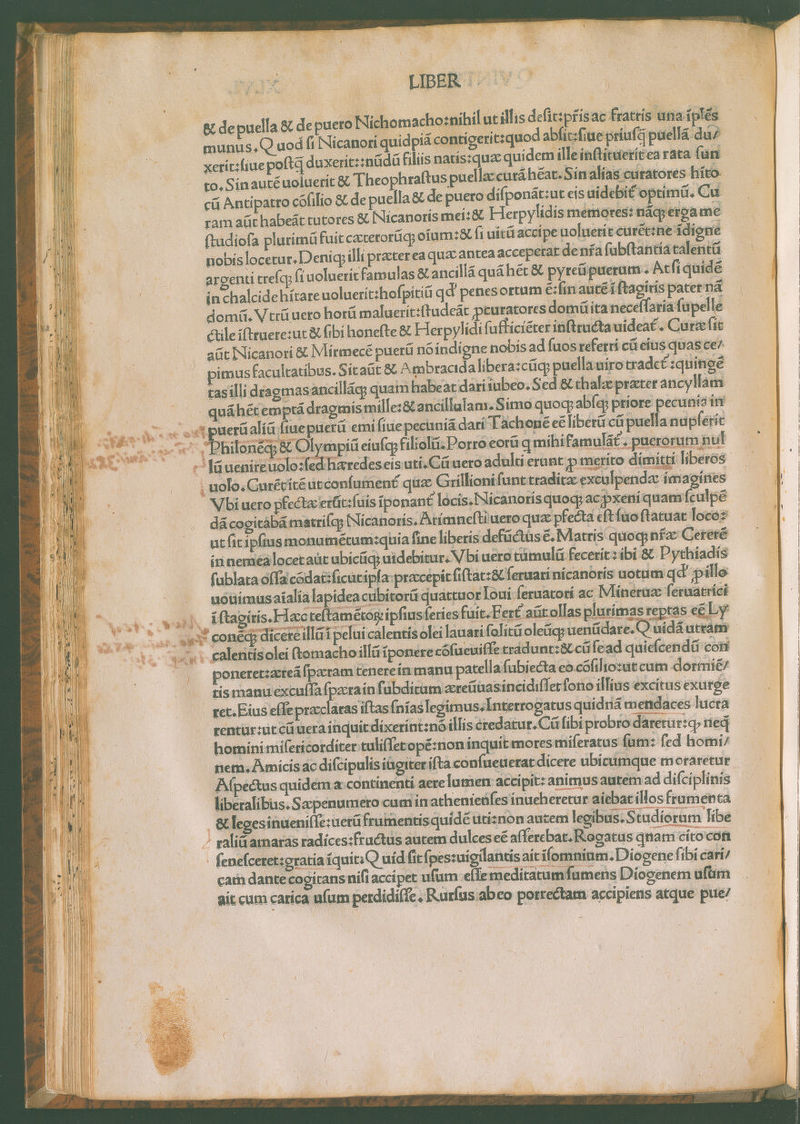 LIBER
& de puella & de puero Nichomacho:nihil ut illis desit:pr̃is ac fratris una ĩplẽs
munus.Quod si Nicanori quidpiã contigerit:quod absit:siue priusq̃ puellã du/
xerit:siue postq̃ duxerit::nũdũ filiis natis:quæ quidem ille instituerit ea rata sun
to.Sin autẽ uoluerit & Theophrastus puellæ curã hẽat.Sin alias curatores hĩto
cũ Antipatro cõsilio & de puella & de puero disponãt:ut eis uidebit̃ optimũ. Cu
ram aũt habeãt tutores & Nicanoris mei:& Herpylidis memores: nãq; erga me
studiosa plurimũ fuit cæterorũq; oĩum:& si uirũ accipe uoluerit curẽt:ne ĩdigne
nobis locetur.Deniq; illi præter ea quæ antea acceperat de nr̃a substantia talentũ
argenti tresq; si uoluerit famulas & ancillã quã hẽt & pyreũ puerum . At si quidẽ
in chalcide hĩtare uoluerit:hospitiũ qd' penes ortum ẽ:sin autẽ ĩ stagiris pater nã
domũ. Vtrũ uero horũ maluerit:studeãt ꝓcuratores domũ ita necessaria supelle
ctile ĩstruere:ut & sibi honeste & Herpylidi sufficiẽter instructa uideat̃. Curæ sit
aũt Nicanori & Mirmecẽ puerũ nõ indigne nobis ad suos referri cũ eius quas ce/
pimus facultatibus. Sit aũt & Ambracida libera:cũq; puella uiro tradet̃ :quinge
tas illi dragmas ancillãq; quam habeat dari iubeo. Sed & thalæ præter ancyllam
quã hẽt emptã dragmis mille:& ancillulam. Simo quoq; absq; priore pecunia in
puerũ aliũ siue puerũ emi siue pecuniã dari Tachonẽ eẽ liberũ cũ puella nupserit
Philonẽq; & Olympiũ eiusq; filiolũ.Porro eorũ q mihi famulãt̃. puerorum nul
lũ uenire uolo:sed hæredes eis uti.Cũ uero adulti erunt ꝓ merito dimitti liberos
uolo. Curẽt itẽ ut consument̃ quæ Grillioni sunt traditæ exculpendæ imagines
Vbi uero pfectæ erũt:suis ĩponant̃ locis.Nicanoris quoq; ac ꝓxeni quam sculpẽ
dã cogitabã matrisq; Nicanoris. Arimnesti uero quæ pfecta est suo statuat loco:
ut sit ipsius monumẽtum:quia sine liberis defũctus ẽ.Matris quoq; nr̃æ Cererẽ
in nemea locet aut ubicũq; uidebitur.Vbi uero tumulũ fecerit: ibi & Pythiadis
sublata ossa cõdat:sicut ipsa præcepit sistat:& seruari nicanoris uotum qd' ꝓ illo
uouimus aĩalia lapidea cubitorũ quattuor Ioui seruatori ac Mineruæ seruatrici
ĩ stagiris.Hæc testamẽtoꝝ ipsius series fuit.Fert̃ aũt ollas plurimas reptas eẽ Ly
conẽq; dicere illũ ĩ pelui calentis olei lauari solitũ oleũq; uenũdare.Quidã utram
calentis olei stomacho illũ ĩponere cõsueuisse tradunt:& cũ sead quiescendũ con
poneret:æreã spæram tenere in manu patella subiecta eo cõsilio:ut cum dormiẽ/
tis manu excussa spæra in subditum æreũuas incidisset sono illius excitus exurge
ret.Eius esse præclaras istas sñias legimus.Interrogatus quidnã mendaces lucra
rentur:ut cũ uera inquit dixerint:nõ illis credatur.Cũ sibi probro daretur:q̃ neq̃
homini misericorditer tulisset opẽ:non inquit mores miseratus sum: sed homi/
nem. Amicis ac discipulis iũgiter ista consueuerat dicere ubicumque moraretur
Aspectus quidem a continenti aere lumen accipit: animus autem ad disciplinis
liberalibus. Sæpenumero cum in athenienses inueheretur aiebat illos frumenta
& leges inuenisse:uerũ frumentis quidẽ uti:non autem legibus.Studiorum libe
raliũ amaras radices:fructus autem dulces eẽ asserebat.Rogatus qnam cito con
senesceret:gratia ĩquit.Quid sit spes:uigilantis ait ĩsomnium.Diogene sibi cari/
cam dante cogitans nisi accipet usum esse meditatum sumens Diogenem usum
ait cum carica usum perdidisse. Rursus ab eo porrectam accipiens atque pue/